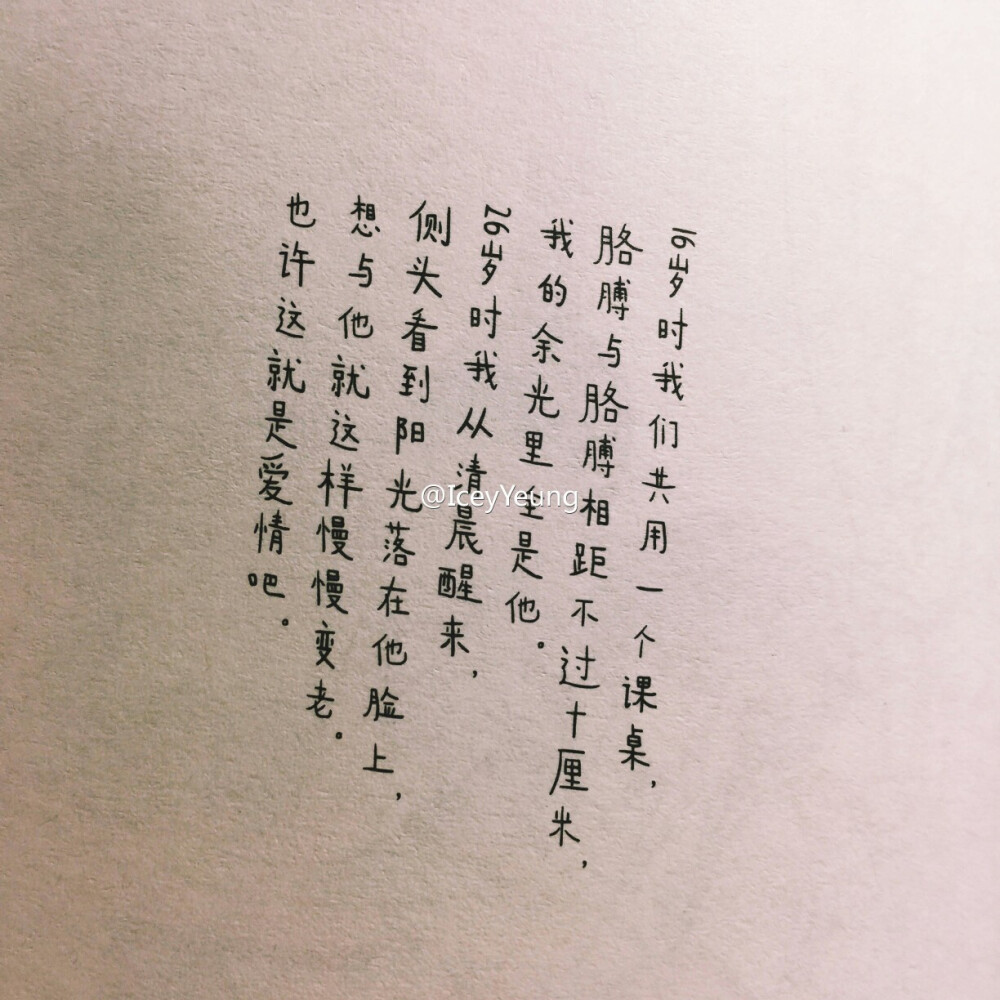 16岁时我们共用一个课桌，
胳膊与胳膊相距不过十厘米，
我的余光里全是他。
26岁时我从清晨醒来，
侧头看到阳光落在他脸上，
想与他就这样慢慢变老。
也许这就是爱情吧。
@IceyYeung